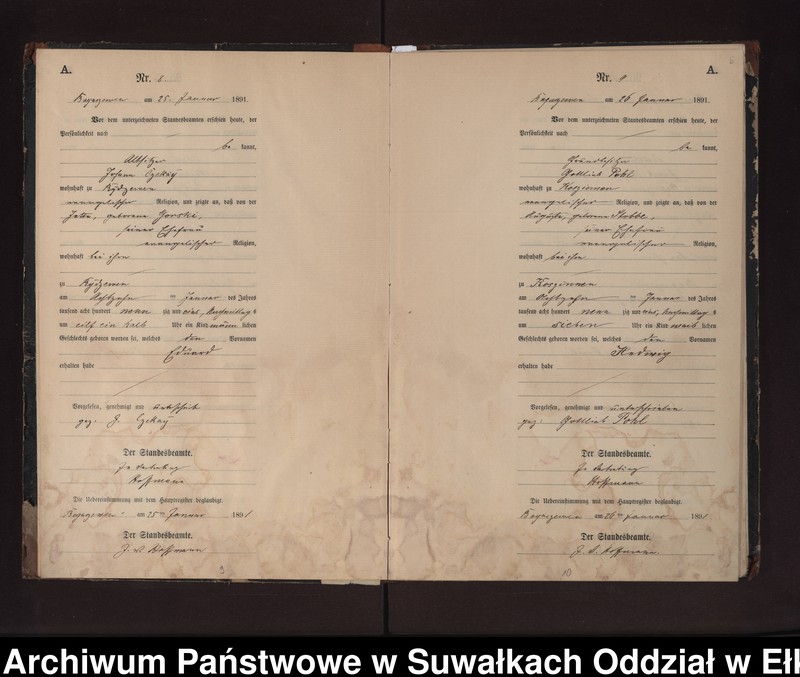 A.
Nr. 8
am 25. Januar 1891.
Vor dem unterzeichneten Standesbeamten erschien heute, der
Persönlichkeit nach
be kannt,
Altsitzer
Johann Czekay
wohnhaft zu
evangelischer Religion, und zeigte an, daß von der
geborene Gorski,
seiner Ehefrau
evangelischer Religion,
wohnhaft bei ihm
zu
am Achtzehn ten Januar des Jahres
tausend acht hundert neun zig und eins, Nachmittag s
um eilf ein halb Uhr ein Kind männ lichen
Geschlechts geboren worden sei, welches den Vornamen
Eduard
erhalten habe
Vorgelesen, genehmigt und
gez: J. Czekay
Der Standesbeamte.
In Vertretung
Hoffmann
Die Uebereinstimmung mit dem Hauptregister beglaubigt.
am 25ten Januar 1891
Der Standesbeamte.
J. V. Hoffmann
9
A.
6
Nr. 9
am 26 Januar 1891.
Vor dem unterzeichneten Standesbeamten erschien heute, der
Persönlichkeit nach
be kannt,
Grundbesitzer
Gottlieb Pohl
wohnhaft zu Koszinnen
evangelischer Religion, und zeigte an, daß von der
Auguste, geborene
seiner Ehefrau
evangelischer Religion,
wohnhaft bei ihm
zu Koszinnen
am Achtzehn ten Januar des Jahres
tausend acht hundert neun zig und eins, Nachmittag s
um sieben Uhr ein Kind weib lichen
Geschlechts geboren worden sei, welches den Vornamen
Hedwig
erhalten habe
Vorgelesen, genehmigt und unterschrieben
gez: Gottlieb Pohl
Der Standesbeamte.
In Vertretung
Hoffmann
Die Uebereinstimmung mit dem Hauptregister beglaubigt.
am 26ten Januar 1891
Der Standesbeamte.
J. V. Hoffmann
10
Archiwum Państwowe w Suwałkach Oddział w Ełk